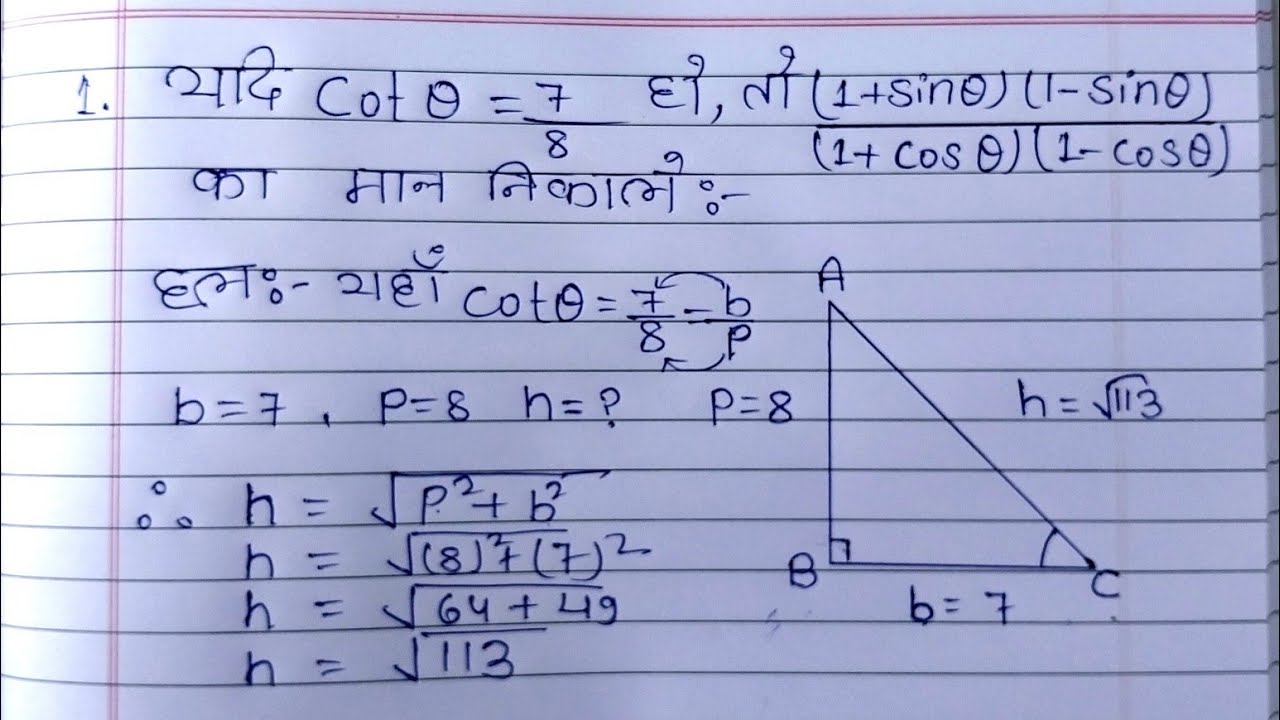 1. यदि cot θ = 7/8 हो, तो (1+sinθ)(1-sinθ)/(1+cosθ)(1-cosθ)
का मान निकालें :-
हल :- यहाँ cotθ = 7/8 = b/p
b = 7 , p = 8 h = ? 
∴ h = √p²+b²
h = √(8)²+(7)²
h = √64+49
h = √113
A
p = 8
h = √113
B
C
b = 7